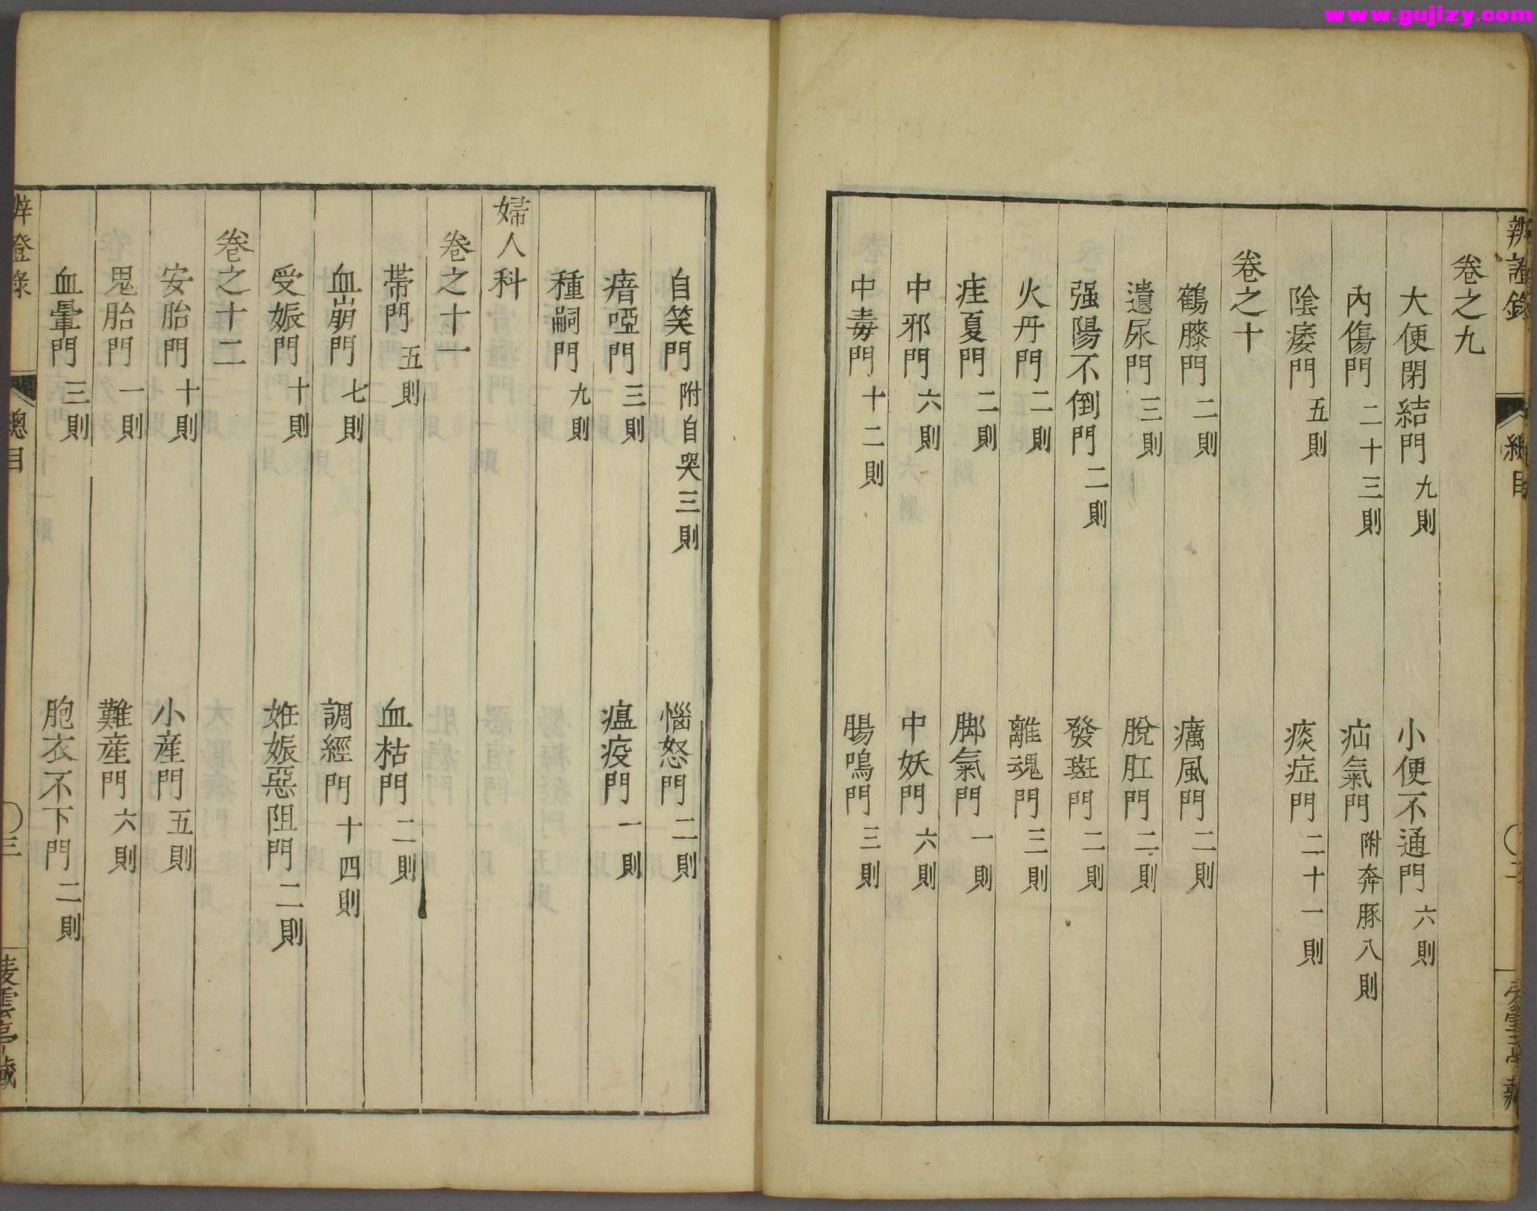 www.gujizy.com
辨證錄 總目
卷之九
大便閉結門 九則 小便不通門 六則
內傷門 二十三則 疝氣門 附奔豚八則
陰痿門 五則 痰症門 二十一則
卷之十
鶴膝門 二則 癘風門 二則
遺尿門 三則 脫肛門 二則
强陽不倒門 二則 發斑門 二則
火丹門 二則 離魂門 三則
疰夏門 二則 脚氣門 一則
中邪門 六則 中妖門 六則
中毒門 十二則 腸鳴門 三則
自笑門 附自哭三則 惱怒門 二則
瘖啞門 三則 瘟疫門 一則
種嗣門 九則
婦人科
卷之十一
帶門 五則 血枯門 二則
血崩門 七則 調經門 十四則
受娠門 十則 姙娠惡阻門 二則
卷之十二
安胎門 十則 小產門 五則
鬼胎門 一則 難產門 六則
血暈門 三則 胞衣不下門 二則
辨證錄 總目 〇三